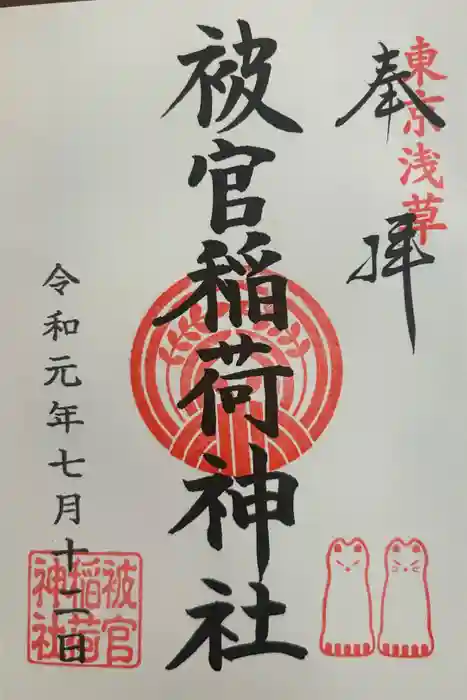 東京浅草
奉拝
被官稲荷神社
令和元年七月十二日
被官
稲荷
神社